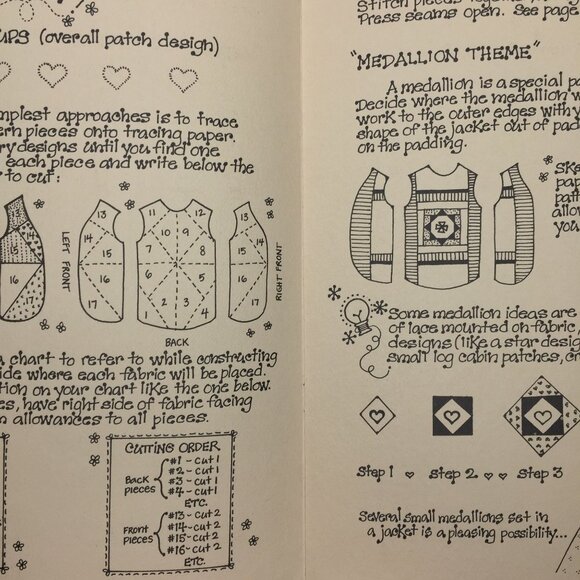 UPS (overall patch design)
mplest approaches is to trace
ern pieces onto tracing paper.
ry designs until you find one
each piece and write below the
r to cut:
LEFT FRONT
14
16
17
13
14
15
16
17
11
12
10
9
7
8
6
5
1
2
3
4
13
14
15
16
17
RIGHT FRONT
BACK
a chart to refer to while constructing
ide where each fabric will be placed.
tion on your chart like the one below.
es, have right side of fabric facing
m allowances to all pieces.
CUTTING ORDER
Back pieces
#1 - cut 1
#2 - cut 1
#3 - cut 1
#4 - cut 1
ETC.
Front pieces
#13 - cut 2
#14 - cut 2
#15 - cut 2
#16 - cut 2
ETC.
Stitch pieces
Press seams open. See page
"MEDALLION THEME"
A medallion is a special pa
Decide where the medallion w
work to the outer edges with y
shape of the jacket out of pad
on the padding.
Ske
pap
patt
allow
you
Some medallion ideas are
of lace mounted on fabric,
designs (like a star desig
small log cabin patches, cr
Step 1 Step 2 Step 3
Several small medallions set in
a jacket is a pleasing possibility...